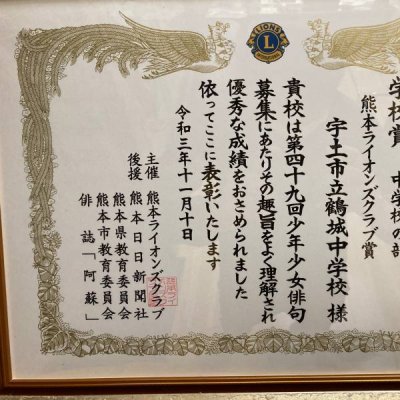 学校賞 中学校の部
熊本ライオンズクラブ賞
宇土市立鶴城中学校 様
貴校は第四十九回少年少女俳句
募集にあたりその趣旨をよく理解され
優秀な成績をおさめられました
依ってここに表彰いたします
令和三年十一月十日
主催 熊本ライオンズクラブ
後援 熊本日日新聞社
熊本県教育委員会
熊本市教育委員会
俳誌「阿蘇」
LIONS
L
INTERNATIONAL